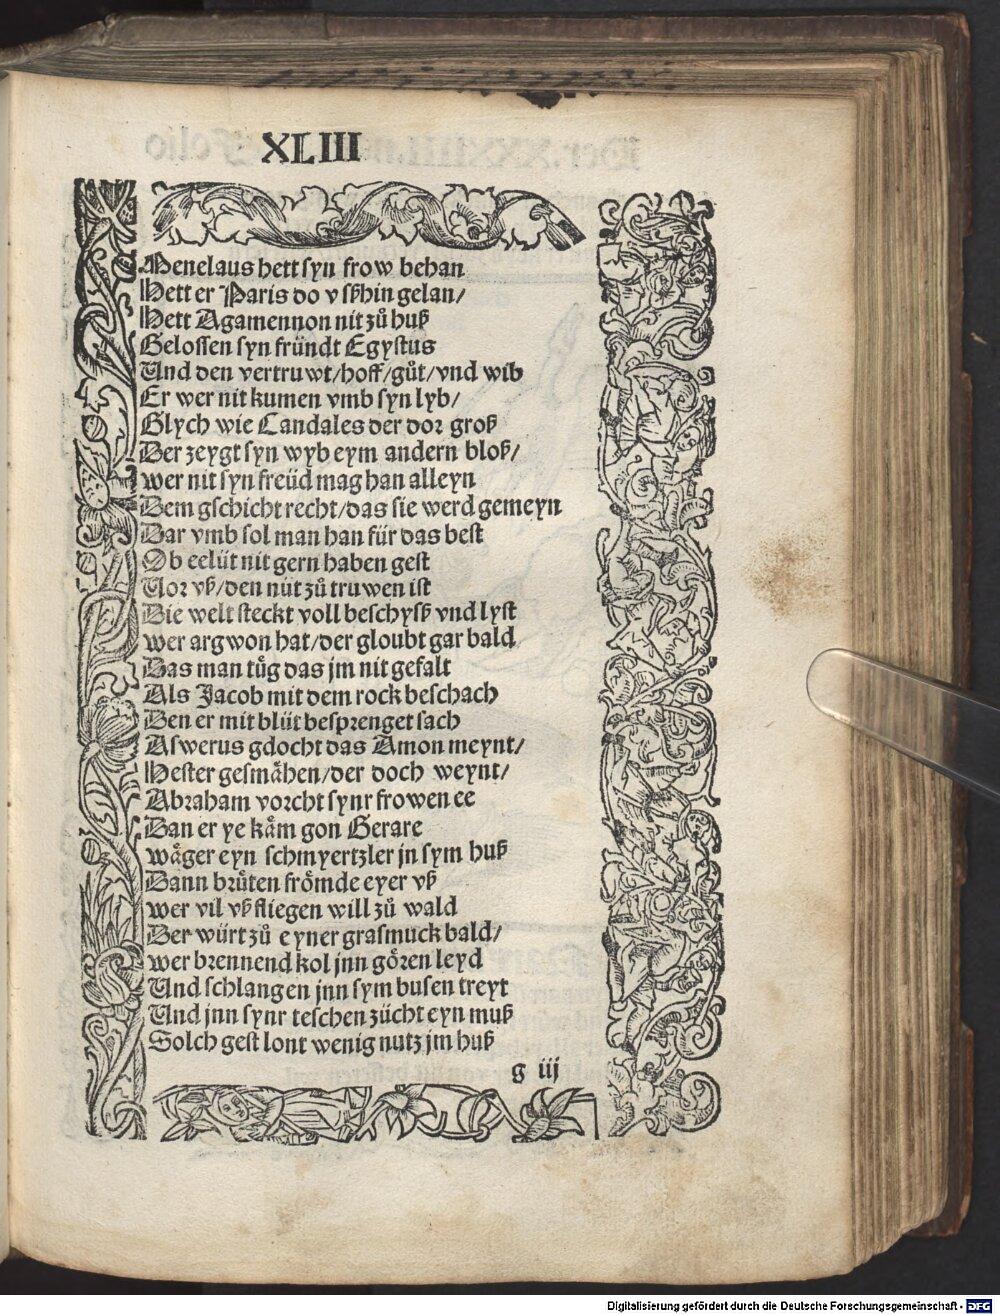 XLIII
Menelaus hett syn frow behan
Hett er Paris do vßhin gelan/
Hett Agamennon nit zů huß
Gelossen syn fründt Egystus
Und den vertruwt/hoff/gůt/vnd wib
Er wer nit kumen vmb syn lyb/
Glych wie Candales der dor groß
Der zeygt syn wyb eym andern bloß/
wer nit syn freüd mag han alleyn
Dem gschicht recht/das sie werd gemeyn
Dar vmb sol man han für das best
Ob eelüt nit gern haben gest
Uor vß/den nüt zů truwen ist
Die welt steckt voll beschyß vnd lyst
wer argwon hat/der gloubt gar bald
Das man tůg das jm nit gefalt
Als Jacob mit dem rock beschach
Den er mit blůt besprenget sach
Aswerus gdocht das Amon meynt/
Hester gesmähen/der doch weynt/
Abraham vorcht synr frowen ee
Dan er ye kåm gon Gerare
wåger eyn schmyertzler jn sym huß
Dann brůten frömde eyer vß
wer vil vß fliegen will zů wald
Der würt zů eyner grasmuck bald/
wer brennend kol jnn gören leyd
Und schlangen jnn sym busen treyt
Und jnn synr teschen zücht eyn muß
Solch gest lont wenig nutz jm huß
g iij
Digitalisierung gefördert durch die Deutsche Forschungsgemeinschaft - DFG